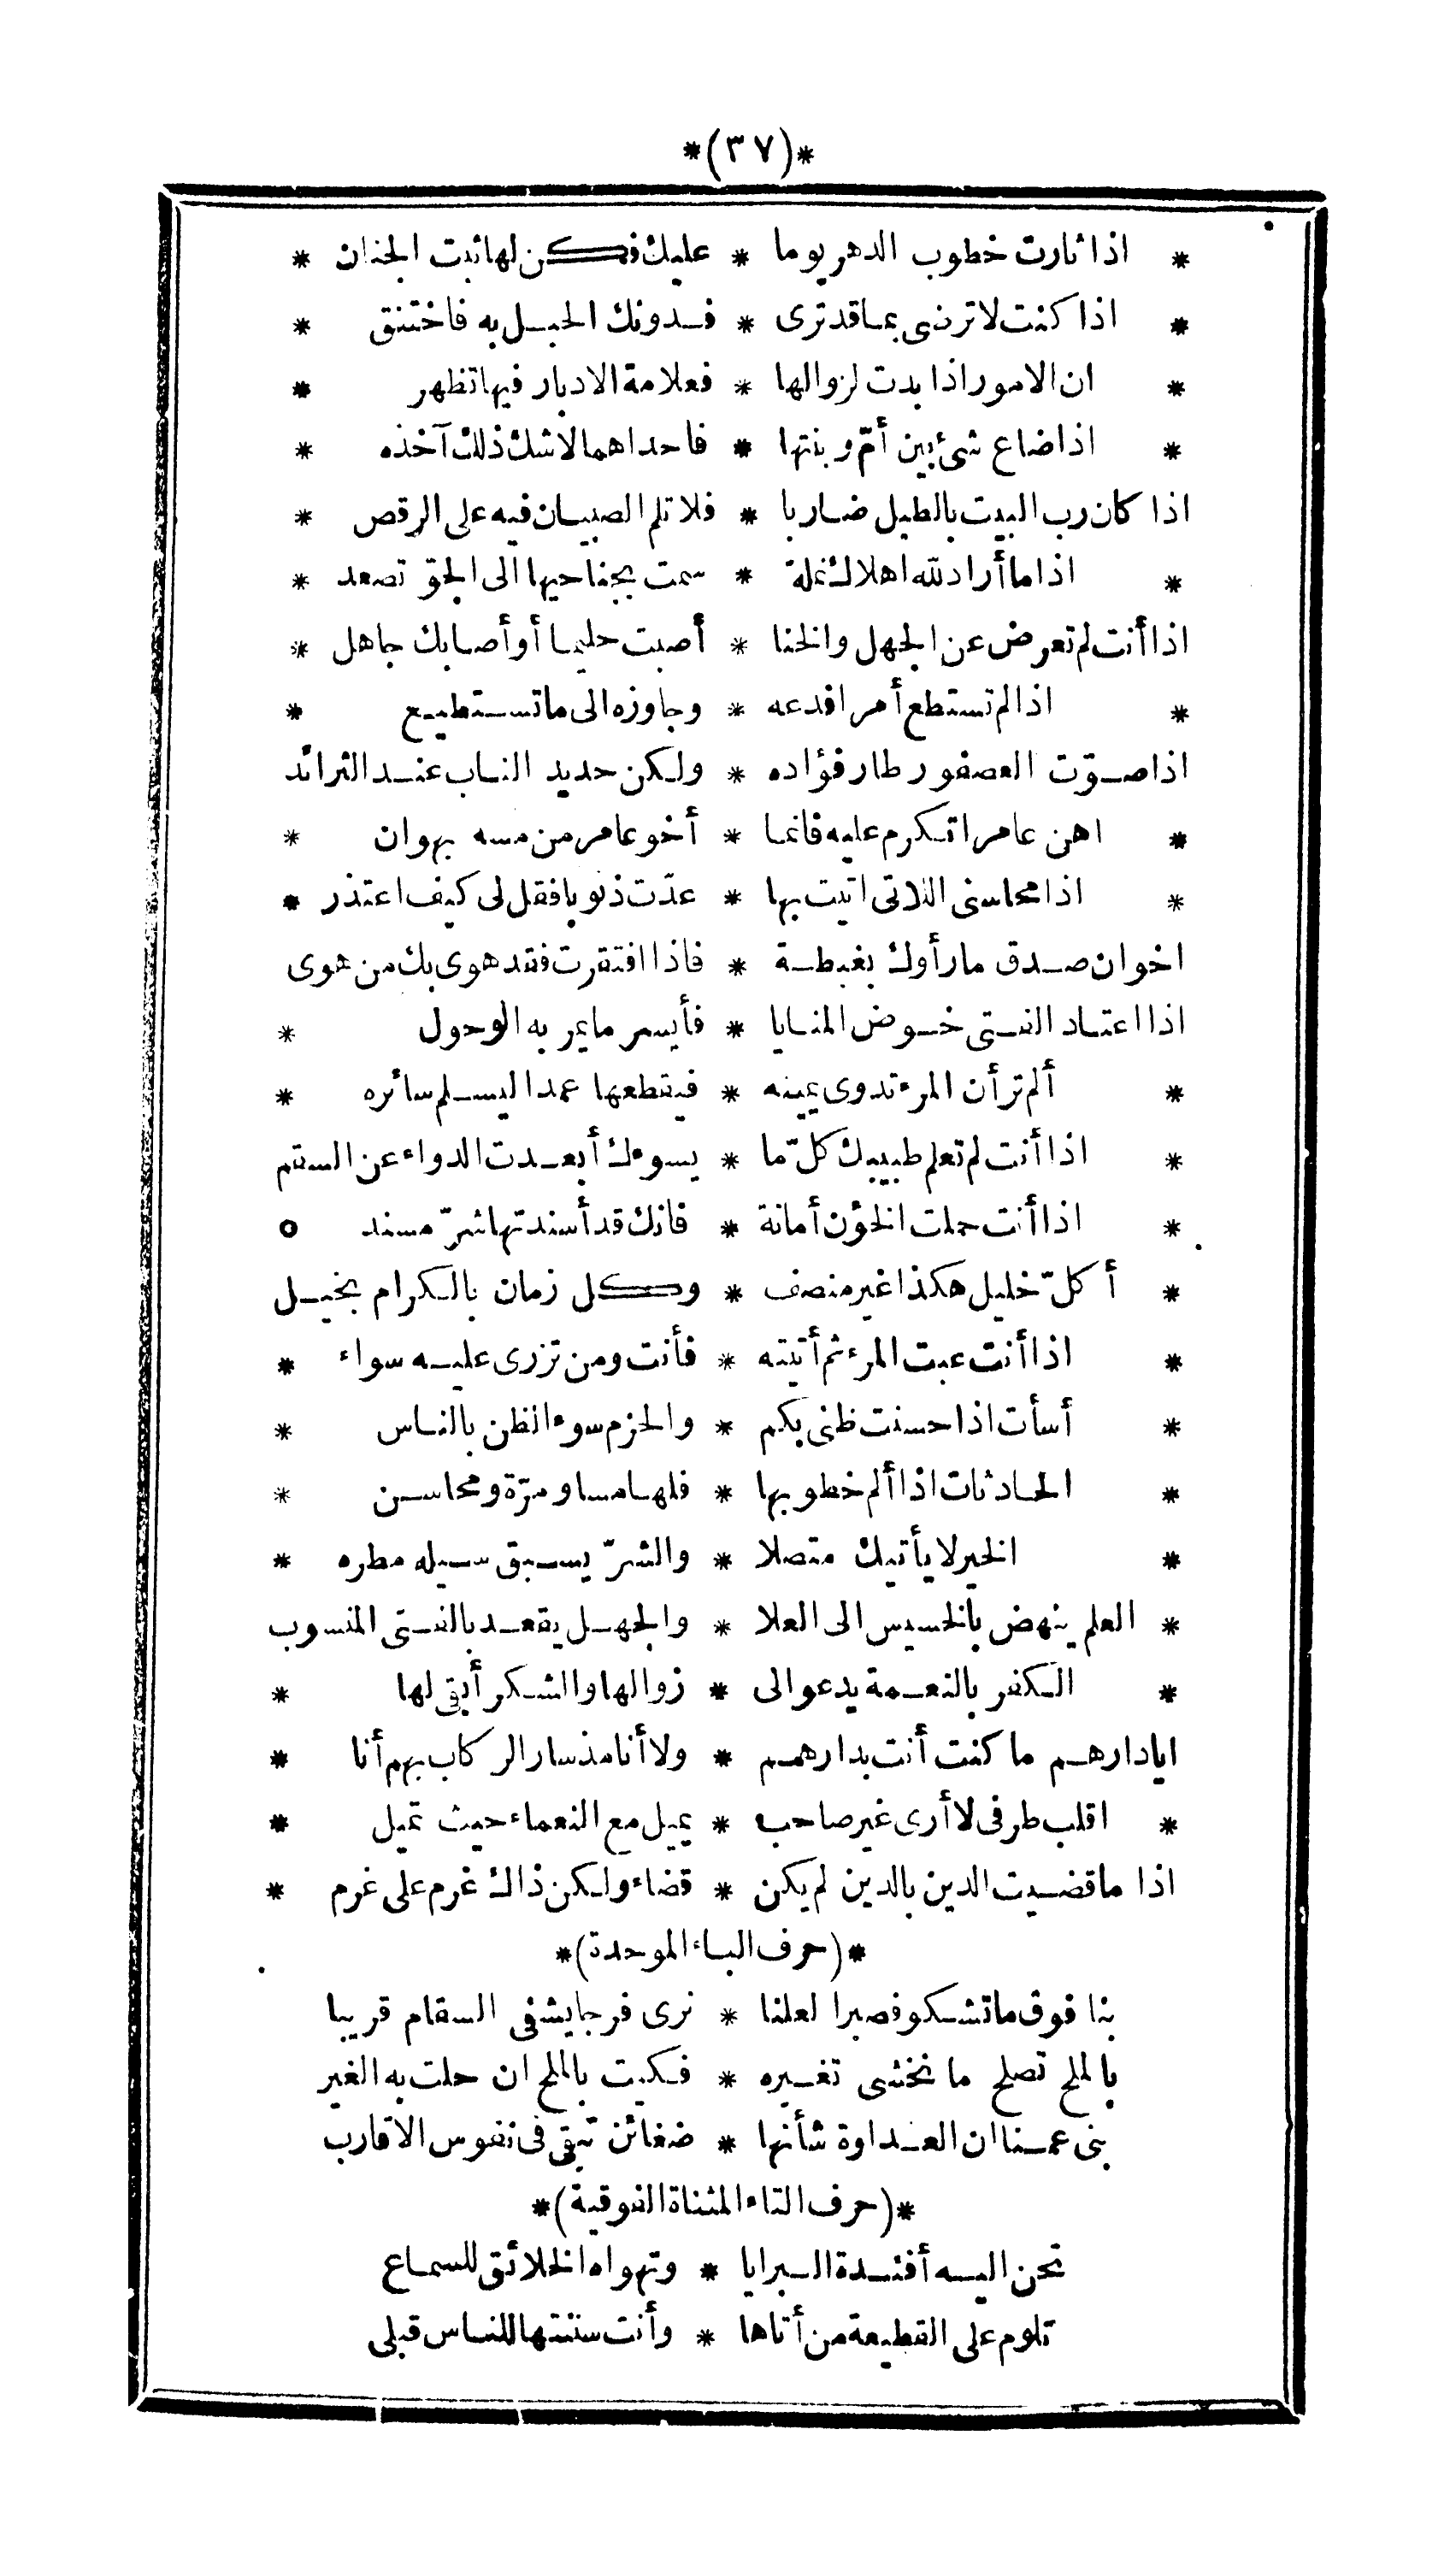 *(٣٧)*
* اذا ثارت خطوب الدهر يوما * عليك فكن لها ثبت الجنان *
* اذا كنت لا ترضى بما قد ترى * فدونك الحبل به فاختنق *
* ان الامور اذا بدت لزوالها * فعلامة الادبار فيها تظهر *
* اذا ضاع شئ بين أمّ وبنتها * فاحداهما لا شك ذلك آخذه *
اذا كان رب البيت بالطبل ضاربا * فلا تلم الصبيان فيه على الرقص *
* اذا ما أراد الله اهلاك نملة * سمت بجناحيها الى الجوّ تصعد *
اذا أنت لم تعرض عن الجهل والخنا * أصبت حليما أو أصابك جاهل *
* اذا لم تستطع أمرا فدعه * وجاوزه الى ما تستطيع *
اذا صوّت العصفور طار فؤاده * ولكن حديد الناب عند الثرائد
* اهن عامرا تكرم عليه فانما * أخو عامر من مسه بهوان *
* اذا محاسنى اللاتى اتيت بها * عدّت ذنوبا فقل لى كيف اعتذر *
اخوان صدق ما رأوك بغبطة * فاذا افتقرت فقد هوى بك من هوى
اذا اعتاد الفتى خوض المنايا * فأيسر ما يمر به الوحول *
* ألم تر أن المرء تدوى يمينه * فيقطعها عمدا ليسلم سائره *
* اذا أنت لم تعلم طبيبك كلّ ما * يسوءك أبعدت الدواء عن السقم
* اذا أنت حملت الخؤن أمانة * فانك قد أسندتها شرّ مسند o
* أكلّ خليل هكذا غير منصف * وكل زمان بالكرام بخيل
* اذا أنت عبت المرء ثم أتيته * فأنت ومن تزرى عليه سواء *
* أسأت اذا حسنت ظنى بكم * والحزم سوء الظن بالناس *
* الحادثات اذا ألم خطوبها * فلها مساو مرّة ومحاسن *
* الخير لا يأتيك متصلا * والشرّ يسبق سيله مطره *
* العلم ينهض بالخسيس الى العلا * والجهل يقعد بالفتى المنسوب
* الكفر بالنعمة يدعو الى * زوالها والشكر أبقى لها *
ايا دارهم ما كنت أنت بدارهم * ولا أنا مذ سار الركاب بهم أنا *
* اقلب طرفى لا أرى غير صاحب * يميل مع النعماء حيث تميل *
اذا ما قضيت الدين بالدين لم يكن * قضاء ولكن ذاك غرم على غرم *
*(حرف الباء الموحدة)*
بنا فوق ما تشكو فصبرا لعلنا * نرى فرجا يشفى السقام قريبا
بالملح تصلح ما نخشى تغيره * فكيت بالملح ان حلت به الغير
بنى عمنا ان العداوة شأنها * ضغائن تبقى فى نفوس الاقارب
*(حرف التاء المثناة الفوقية)*
تحن اليه أفئدة البرايا * وتهواه الخلائق للسماع
تلوم على القطيعة من أتاها * وأنت سننتها للناس قبلى